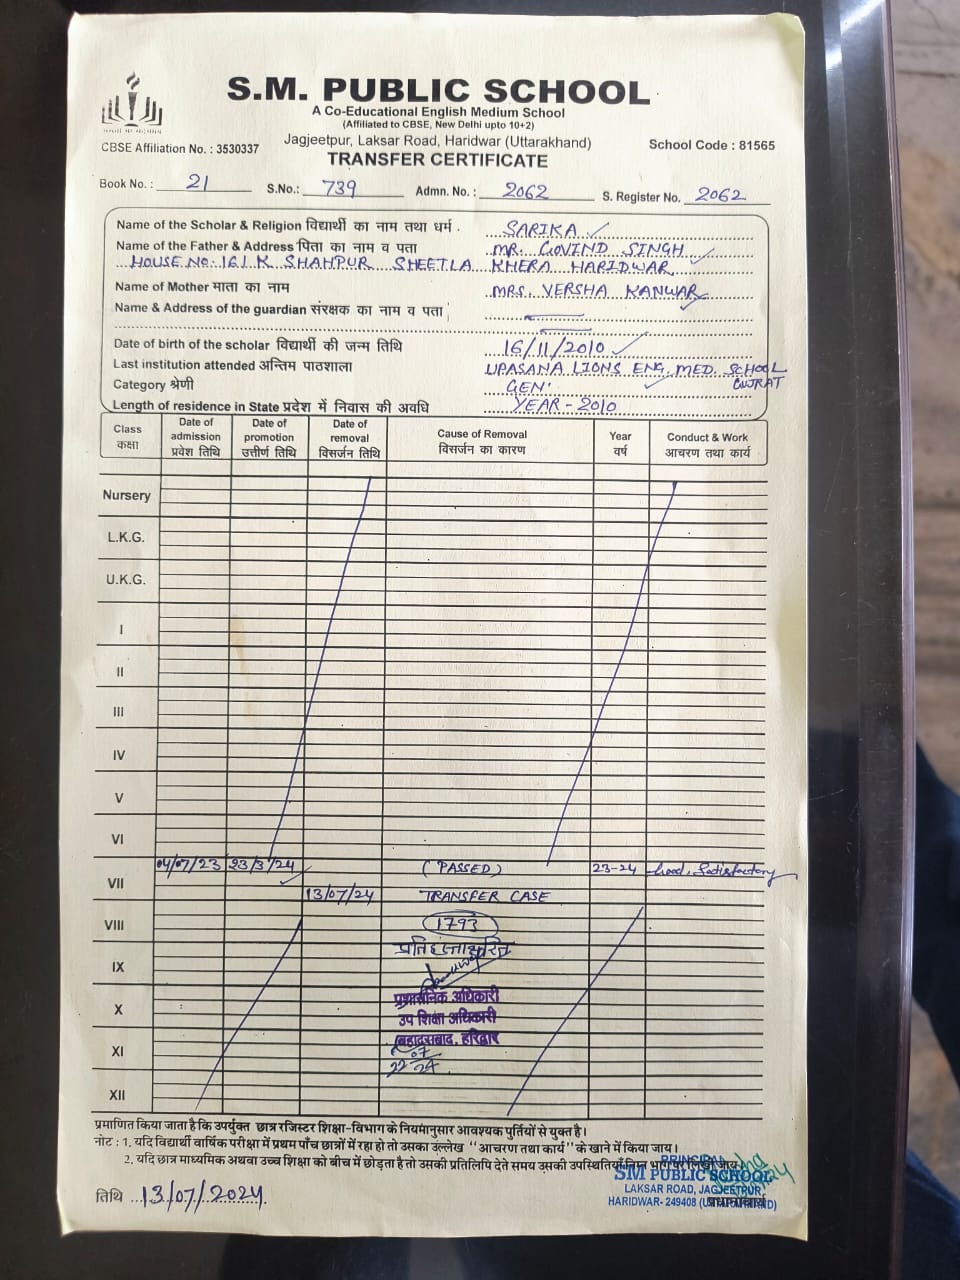 S.M. PUBLIC SCHOOL
A Co-Educational English Medium School
(Affiliated to CBSE, New Delhi upto 10+2)
Jagjeetpur, Laksar Road, Haridwar (Uttarakhand)
CBSE Affiliation No. : 3530337
School Code : 81565
TRANSFER CERTIFICATE
Book No. : 21 S.No.: 739 Admn. No. : 2062 S. Register No. 2062
Name of the Scholar & Religion विद्यार्थी का नाम तथा धर्म . SARIKA
Name of the Father & Address पिता का नाम व पता MR. GOVIND SINGH
HOUSE NO. 161 K SHAHPUR SHEETLA KHERA HARIDWAR
Name of Mother माता का नाम MRS. VERSHA KANWAR
Name & Address of the guardian संरक्षक का नाम व पता
Date of birth of the scholar विद्यार्थी की जन्म तिथि 16/11/2010
Last institution attended अन्तिम पाठशाला UPASANA LIONS ENG. MED. SCHOOL
Category श्रेणी GEN. GUJRAT
Length of residence in State प्रदेश में निवास की अवधि YEAR - 2010
Class कक्षा
Date of admission प्रवेश तिथि
Date of promotion उत्तीर्ण तिथि
Date of removal विसर्जन तिथि
Cause of Removal विसर्जन का कारण
Year वर्ष
Conduct & Work आचरण तथा कार्य
Nursery
L.K.G.
U.K.G.
I
II
III
IV
V
VI
04/07/23 23/3/24 (PASSED) 23-24 Good, Satisfactory
VII
13/07/24 TRANSFER CASE
VIII 1793
प्रतिहस्ताक्षरित
IX
प्रशासनिक अधिकारी
X
उप शिक्षा अधिकारी
बहादराबाद, हरिद्वार
XI
07
22 24
XII
प्रमाणित किया जाता है कि उपर्युक्त छात्र रजिस्टर शिक्षा-विभाग के नियमानुसार आवश्यक पुर्तियों से युक्त है।
नोट : 1. यदि विद्यार्थी वार्षिक परीक्षा में प्रथम पाँच छात्रों में रहा हो तो उसका उल्लेख ''आचरण तथा कार्य'' के खाने में किया जाय।
2. यदि छात्र माध्यमिक अथवा उच्च शिक्षा को बीच में छोड़ता है तो उसकी प्रतिलिपि देते समय उसकी उपस्थितियाँ निम्न भाग पर लिखी जाय।
PRINCIPAL
SM PUBLIC SCHOOL
LAKSAR ROAD, JAGJEETPUR,
HARIDWAR- 249408 (UTTARAKHAND)
प्रधानाचार्य
तिथि 13/07/2024.